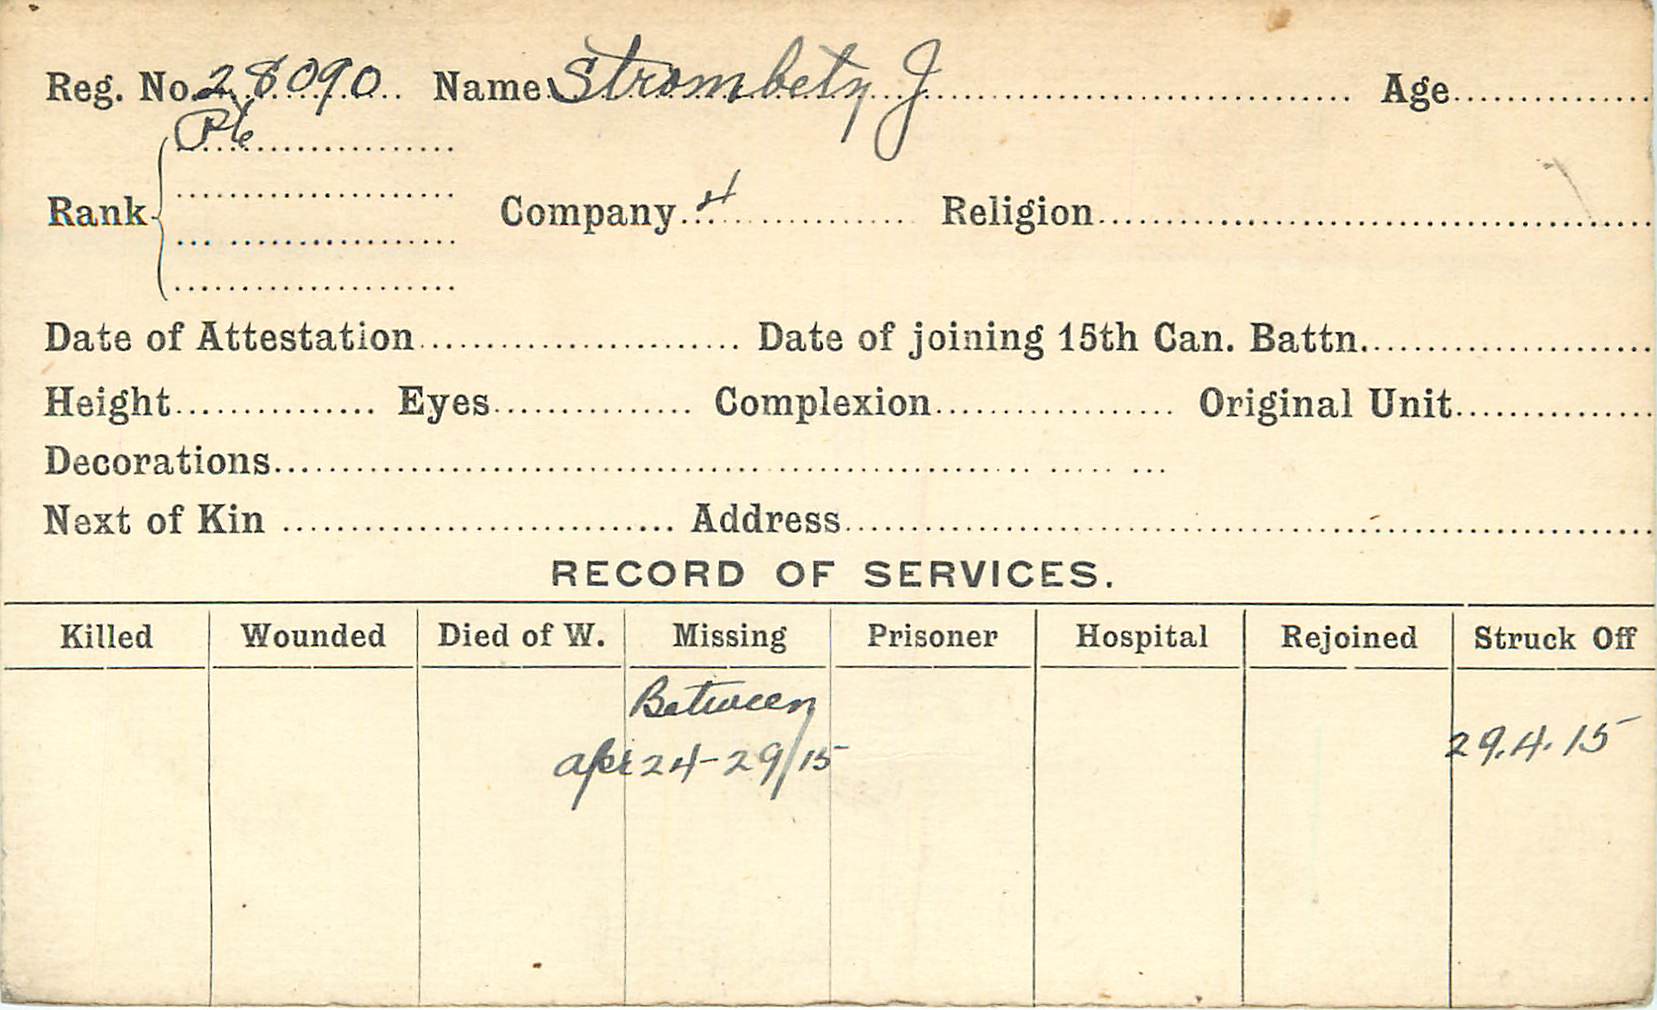 Reg. No. 28090 Name Strombety J Age
Pte
Rank Company 4 Religion
Date of Attestation Date of joining 15th Can. Battn.
Height Eyes Complexion Original Unit
Decorations
Next of Kin Address
RECORD OF SERVICES.
Killed Wounded Died of W. Missing Prisoner Hospital Rejoined Struck Off
Between
apr 24-29/15 29.4.15